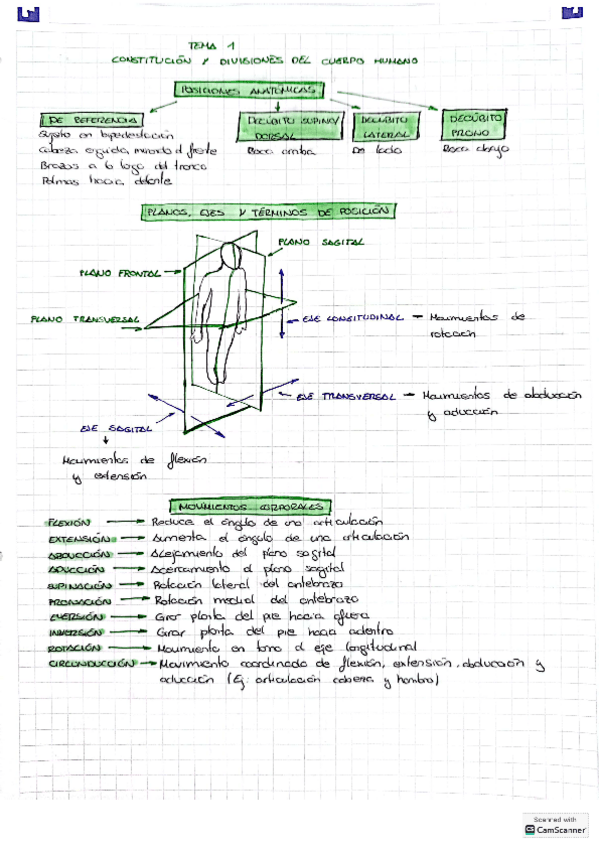 TEMA 1
CONSTITUCIÓN Y DIVISIONES DEL CUERPO HUMANO
POSICIONES ANATÓMICAS
DE REFERENCIA
Sujeto en bipedestación
Cabeza erguida, mirando al frente
Brazos a lo largo del tronco
Palmas hacia delante
DECÚBITO SUPINO/
DORSAL
Boca arriba
DECÚBITO
LATERAL
De lado
DECÚBITO
PRONO
Boca abajo
PLANOS, EJES Y TÉRMINOS DE POSICIÓN
PLANO SAGITAL
PLANO FRONTAL
PLANO TRANSVERSAL
EJE LONGITUDINAL → Movimientos de
rotación
EJE TRANSVERSAL → Movimientos de abducción
y aducción
EJE SAGITAL
Movimientos de flexión
y extensión
MOVIMIENTOS CORPORALES
FLEXIÓN → Reduce el ángulo de una articulación
EXTENSIÓN → Aumenta el ángulo de una articulación
ABDUCCIÓN → Alejamiento del plano sagital
ADUCCIÓN → Acercamiento al plano sagital
SUPINACIÓN → Rotación lateral del antebrazo
PRONACIÓN → Rotación medial del antebrazo
EVERSIÓN → Girar planta del pie hacia afuera
INVERSIÓN → Girar planta del pie hacia adentro
ROTACIÓN → Movimiento en torno al eje longitudinal
CIRCONDUCCIÓN → Movimiento coordinado de flexión, extensión, abducción y
aducción (Ej: articulación cabeza y hombro)
Scanned with
CamScanner